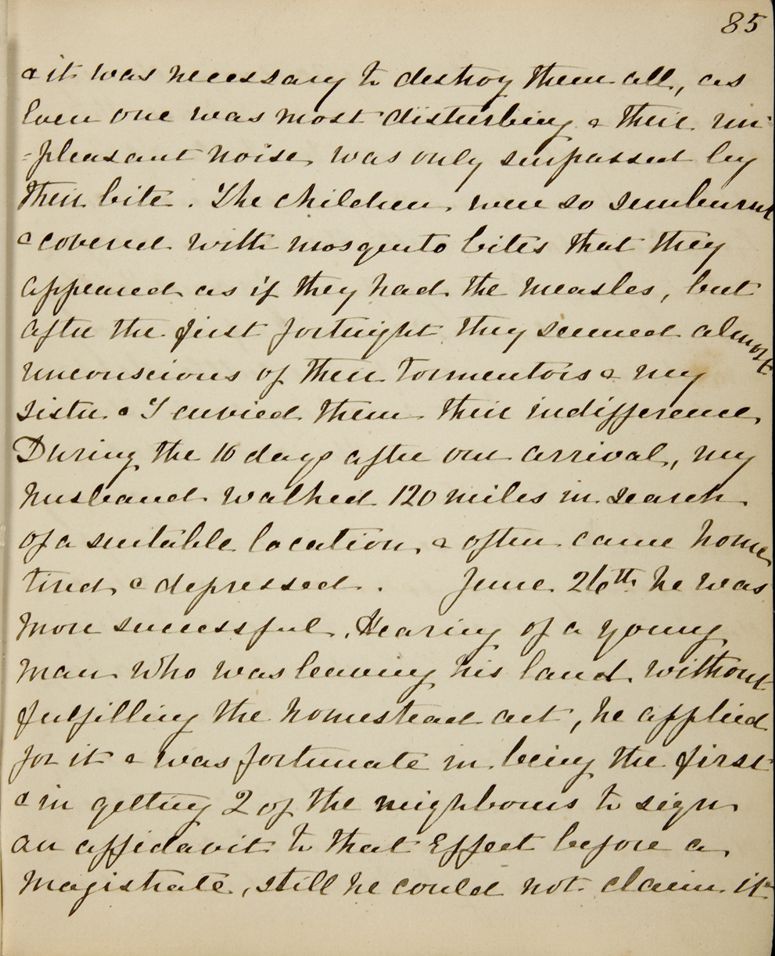 85
& it was necessary to destroy them all, as
Even one was most disturbing & their un-
=pleasant noise was only surpassed by
their bite. The children were so sunburnt
& covered with mosquito bites that they
appeared as if they had the measles, but
after the first fortnight they seemed almost
unconscious of their tormentors & my
sister & I envied them their indifference
During the 10 days after our arrival, my
husband walked 120 miles in search
of a suitable location, & often came home
tired & depressed. June 26th he was
more successful. Hearing of a young
man who was leaving his land without
fulfilling the homestead act, he applied
for it & was fortunate in being the first
& in getting 2 of the neighbours to sign
an affidavit to that Effect before a
Magistrate, still he could not claim it